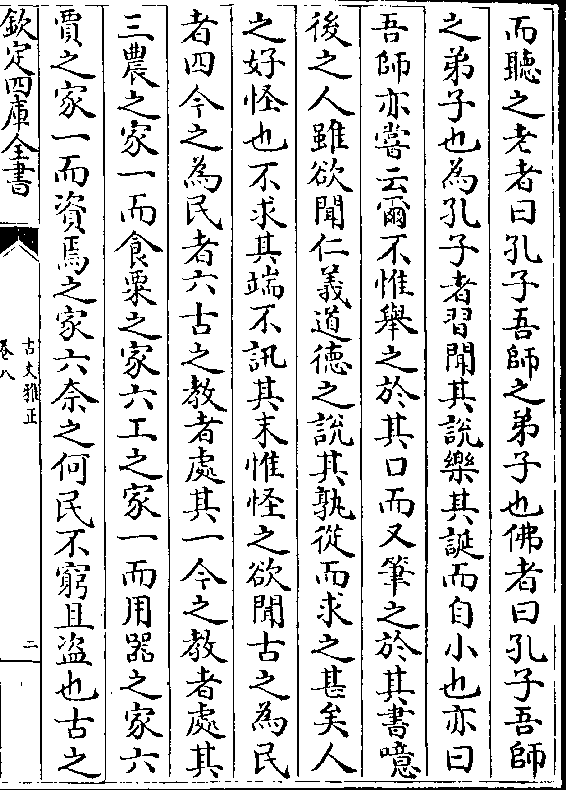 而聽之老者曰孔子吾師之弟子也佛者曰孔子吾師
之弟子也為孔子者習聞其説樂其誕而自小也亦曰
吾師亦嘗云爾不惟舉之於其口而又筆之於其書噫
後之人雖欲聞仁義道德之説其孰從而求之甚矣人
之好怪也不求其端不訊其末惟怪之欲聞古之為民
者四今之為民者六古之教者處其一今之教者處其
三農之家一而食粟之家六工之家一而用器之家六
賈之家一而資焉之家六奈之何民不窮且盜也古之
欽定四庫全書
古文雅正
卷八
二